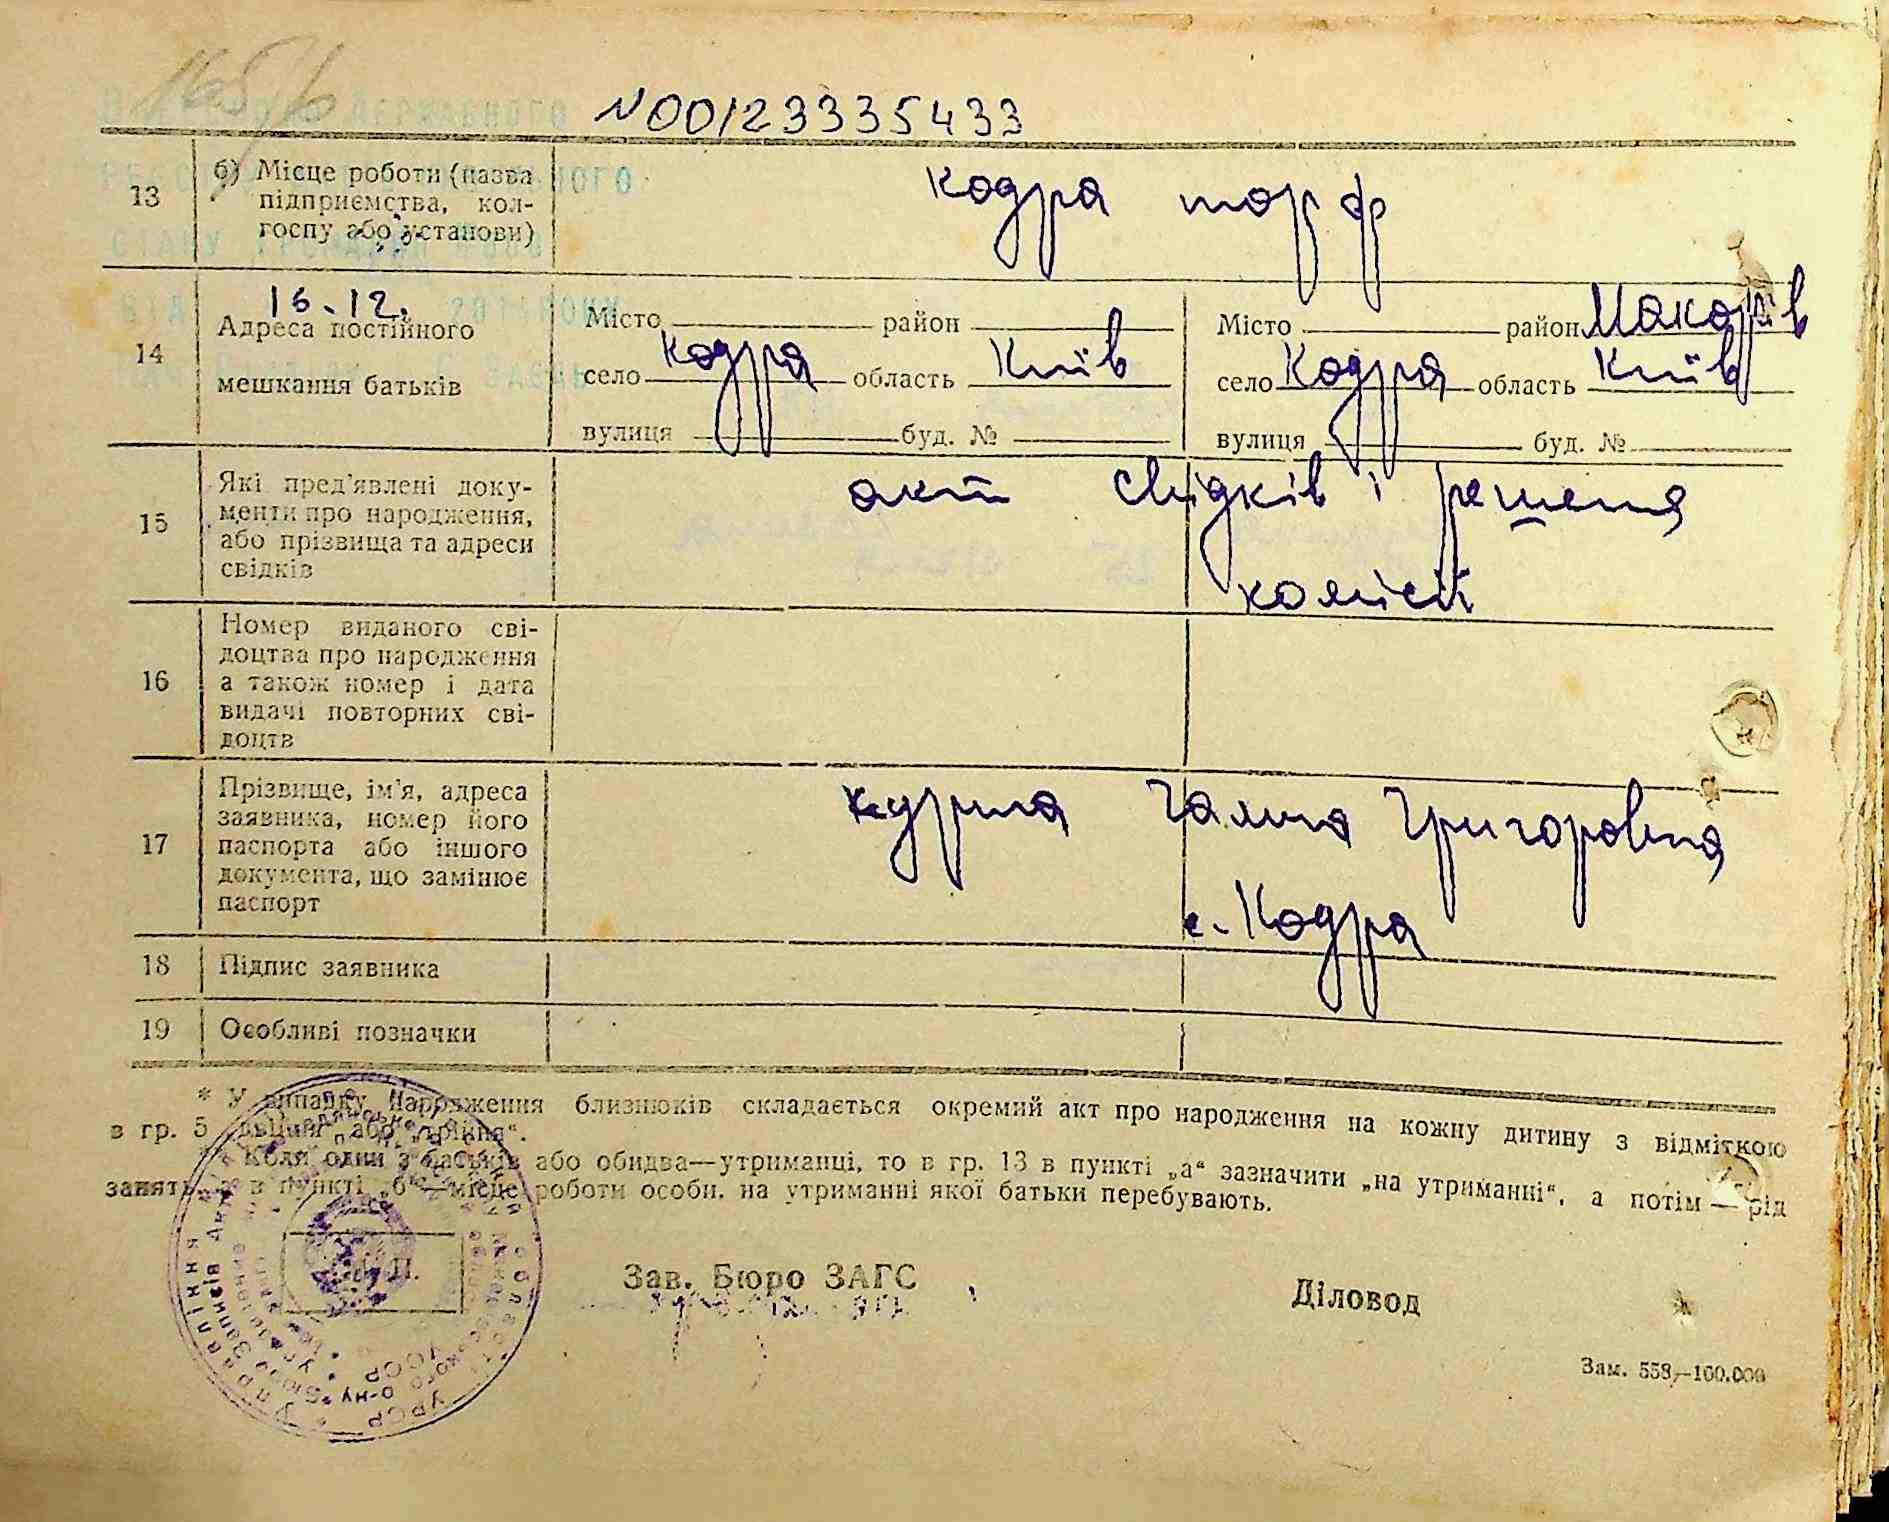 N00123335433
13 б) Місце роботи (назва
підприємства, кол-
госпу або установи)
кодра торф
16.12.
14 Адреса постійного
мешкання батьків
Місто район
село Кодра область Київ
вулиця буд. №
Місто район Макарів
село Кодра область Київ
вулиця буд. №
15 Які пред'явлені доку-
менти про народження,
або прізвища та адреси
свідків
акт свідків і решеня
комісії
16 Номер виданого сві-
доцтва про народження
а також номер і дата
видачі повторних сві-
доцтв
17 Прізвище, ім'я, адреса
заявника, номер його
паспорта або іншого
документа, що замінює
паспорт
Галина Григоровна
с. Кодра
18 Підпис заявника
19 Особливі позначки
* У випадку народження близнюків складається окремий акт про народження на кожну дитину з відміткою
в гр. 5 „двійні“ або „трійня“.
Коли один з батьків або обидва—утриманці, то в гр. 13 в пункті „а“ зазначити „на утриманні“, а потім — рід
занять, а в пункті „б“—місце роботи особи, на утриманні якої батьки перебувають.
Зав. Бюро ЗАГС
Діловод
Зам. 558,—100.000